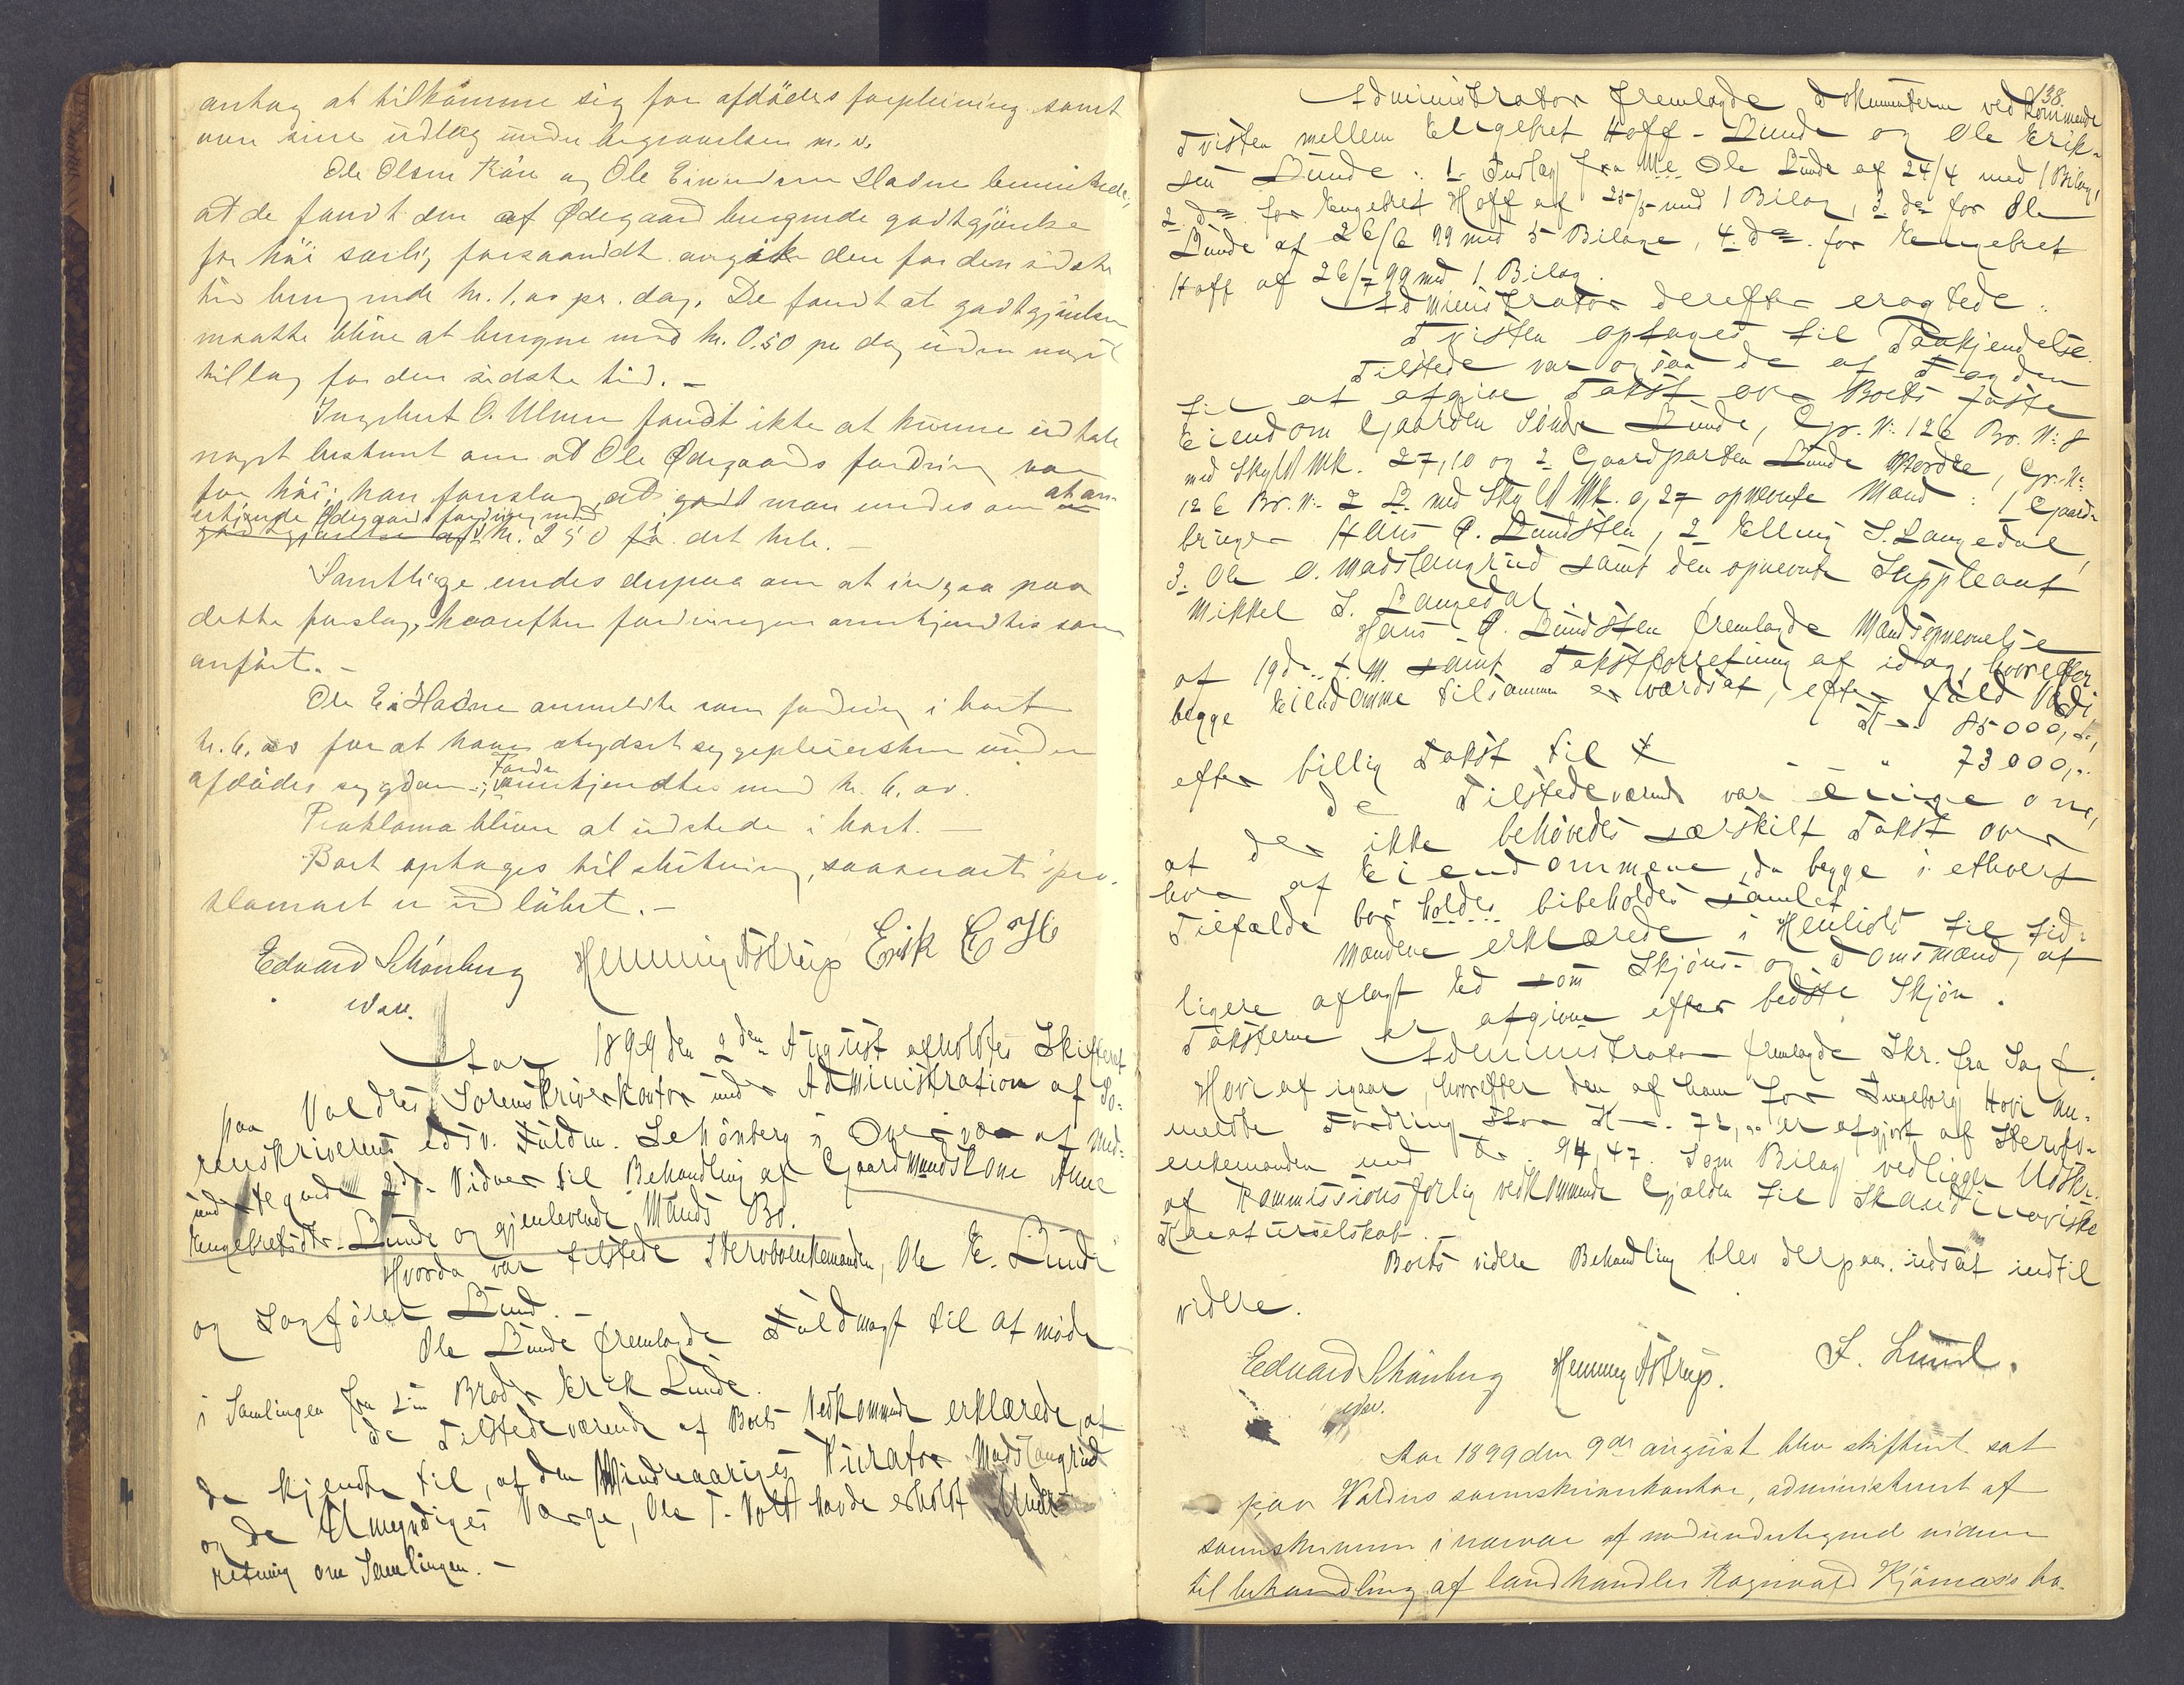 antog at tilkomme sig for afdödes forpleining samt
over sine udlæg under begravelsen m. v.
Ole Olsen Rön og Ole Eivindsen Hadne bemerkede,
at de fandt den af Ødegaard beregnede godtgjörelse
for höi særlig forsaavidt angik den for den sidste
tid beregnede kr. 1,00 pr. dag. De fandt at godtgjörelsen
maatte blive at beregne med kr. 0,50 pr dag uden noget
tillæg for den sidste tid. -
Ingebret O. Ulnes fandt ikke at kunne udtale
noget bestemt om at Ole Ødegaards fordring var
for höi; han foreslog, at man enedes om at an-
erkjende Ødegaards fordring med
kr. 250 for det hele. -
Samtlige enedes derpaa om at indgaa paa
dette forslag, hvorefter fordringen anerkjendtes som
anfört. -
Ole E. Hadne anmeldte som fordring i boet
kr. 6,00 for at have skydset sygepleiersken under
afdödes sygdom; Fordr. anerkjendtes med kr. 6,00.
Proklama bliver at udstede i boet. -
Boet optages til slutning, saasnart pro-
klamaet er udlöbet. -
Edvard Schönberg Henning Astrup Erik
edsv.
Aar 1899 den 2den August afholdtes Skifteret
paa Valdres Sorenskriverkontor under Administration af So-
renskriverens edsv. Fuldm. Schönberg i Overvær af med-
undertegnede 2de Vidner til Behandling af Gaardmandskone Anne
Engebretsdtr. Lunde og gjenlevende Mands Bo.
Hvorda var tilstede Stervboenkemanden, Ole E. Lunde
og Sagförer Lund. -
Ole Lunde fremlagde Fuldmagt til at möde
i Samlingen fra sin Broder Erik Lunde.
De Tilstedeværende af Boets Vedkommende erklærede, at
de kjendte til, at den Mindreaariges Kurator Madslangrud
og de Umyndiges Værge, Ole T. Volt havde erholdt Under-
retning om Samlingen. -
138.
Administrator fremlagde Dokumenterne vedkommende
Tvisten mellem Engebret Hoff - Lunde og Ole Erik-
sen Lunde: 1. Indlæg fra Ole Lunde af 24/4 med 1 Bilag,
2 do. for Engebret Hoff af 25/5 med 1 Bilag, 3 do for Ole
Lunde af 26/6 99 med 5 Bilage, 4. do. for Engebret
Hoff af 26/7 99 med 1 Bilag.
Administrator derefter eragtede:
Tvisten optages til Paakjendelse.
Tilstede var ogsaa de af Lagden
til at afgive Takst over Boets faste
Eiendom Gaarden Söndre Lunde, Gr. No. 126 Br. No. 8
med Skyld Mk. 27,10 og 2 Gaardparten Lunde Nordre, Gr. No.
126 Br. No. 2 med Skyld Mk. 0,27 opnevnte Mænd: 1 Gaard-
bruger Hans O. Lundsten, 2 Elling S. Langedal,
3. Ole O. Madslangrud samt den opnevnte Suppleant
Mikkel S. Langedal.
Hans O. Lundsten fremlagde Mandsopnevnelse
af 19de f. M. samt Takstforretning af idag, hvorefter
begge Eiendomme tilsammen er værdsat, efter fuld Værdi
til Kr. 85000,00,
efter billig Takst til - - " 73000,00.
De Tilstedeværende var enige om,
at der ikke behövedes særskilt Takst over
hver af Eiendommene, da begge i ethvert
Tilfælde bör holdes bibeholdes samlet.
Mændene erklærede i Henhold til tid-
ligere aflagt Ed som Skjöns- og Domsmænd, at
Taksterne er afgivne efter bedste Skjön.
Administrator fremlagde Skr. fra Sagf.
Hovi af igaar, hvorefter den af ham for Ingeborg Hovi an-
meldte Fordring stor Kr. 72,00 er afgjort af Stervbo-
enkemanden med Kr. 94,47. Som Bilag vedligger Udskr.
af Kommissionsforlig vedkommende Gjælden til Skandinaviske
Kreaturselskab. -
Boets videre Behandling blev derpaa udsat indtil
videre.
Edvard Schönberg Henning Astrup. S. Lund.
edsv.
Aar 1899 den 9de august blev skifteret sat
paa Valdres sorenskriverkontor, administreret af
sorenskriveren i nærvær af medundertegnede vidner
til behandling af landhandler Ragnvald Kjörnæs's bo.